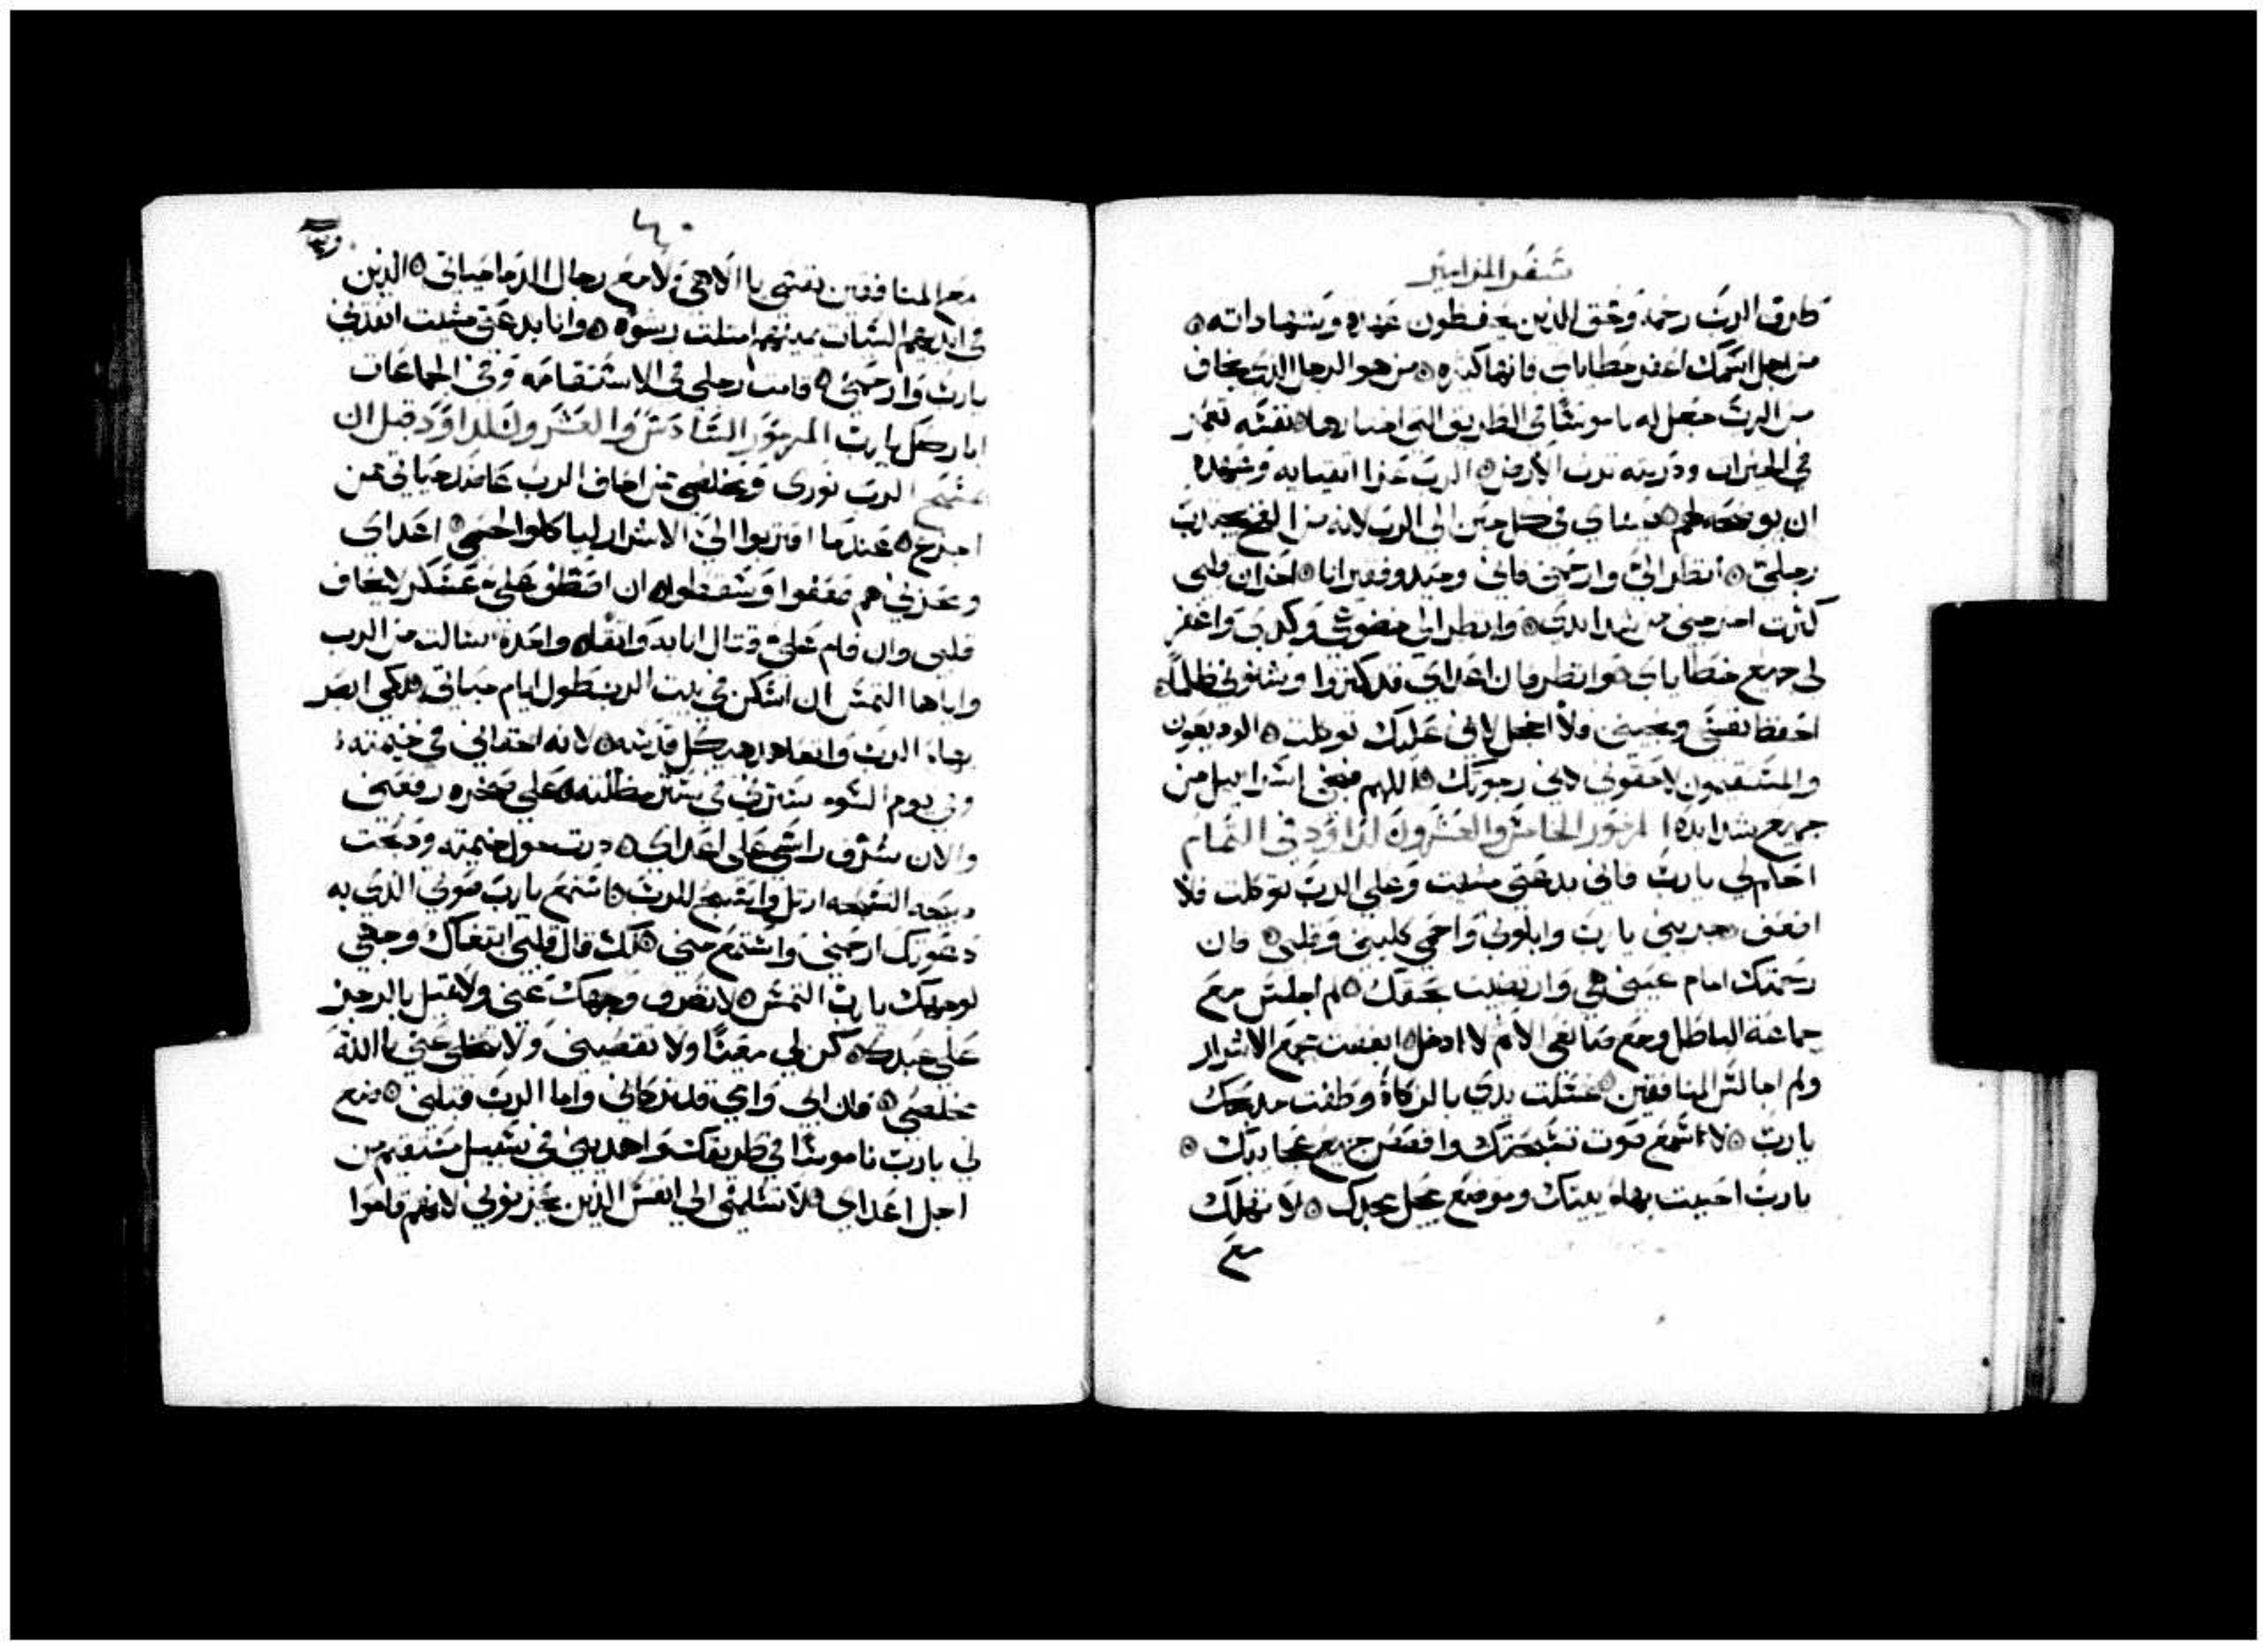 سفر المزامير
طرق الرب رحمة وحق الذين يحفظون عهده وشهاداته
من اجل اسمك اغفر خطاياي فانها كثيره من هو الرجل الذي يخاف
من الرب جعل له ناموسًا في الطريق التي اختارها نفسه تعمر
في الخيرات وذريته ترث الارض الرب عزا اتقيايه وعهده
ان يوضحه لهم عيناي في كل حين الى الرب لانه من الفخ يجذب
رجلي انظر الي وارحمني فاني وحيد وفقير انا احزان قلبي
كثرت اخرجني من شدايدي وانظر الى خضوعي وكدي واغفر
لي جميع خطاياي وانظر فان اعداي قد كثروا وشنوني ظلمًا
احفظ نفسي ونجيني ولا اخجل لاني عليك توكلت الوديعون
والمستقيمون لاصقوني لاني رجوتك اللهم فنجي اسراييل من
جميع شدايده المزمور الخامس والعشرون لداود في التمام
احكم لي يا رب فاني بدعتي مشيت وعلى الرب توكلت فلا
اضعف جربني يا رب وابلوني واحمي كليتي وقلبي فان
رحمتك امام عيني هي وارتضيت بحقك لم اجلس مع
جماعة الباطل ومع مخالفي الامم لا ادخل ابغضت مجمع الاشرار
ولم اجالس المنافقين غسلت يدي بالزكاة وطفت مذبحك
يا رب لا اسمع صوت تسبحتك واقصص جميع عجايبك
يا رب احببت بهاء بيتك وموضع محل مجدك لا تهلك
مع
مع المنافقين نفسي يا الاهي ولا مع رجال الدما حياتي الذين
في ايديهم السيات يمينهم امتلت رشوه وانا بدعتي مشيت انقذني
يا رب وارحمني قامت رجلي في الاستقامه وفي الجماعات
اباركك يا رب المزمور السادس والعشرون لداود قبل ان
يمسح الرب نوري ومخلصي ممن اخاف الرب عاضد حياتي ممن
اجزع عندما اقتربوا الي الاشرار ليا كلوا لحمي اعداي
ومحزني هم ضعفوا وسقطوا ان اصطف علي عسكر لا يخاف
قلبي وان قام علي قتال انا بدا واثقا واحده سالت من الرب
واياها التمس ان اسكن في بيت الرب طول ايام حياتي لكي ابصر
بهاء الرب واتعاهد هيكل قدسه لانه اخفاني في خيمته
وفي يوم السوء سترني في ستر مظلته على صخره رفعني
والان شرف راسي على اعداي درت حول خيمته وذبحت
ذبيحة التسبحه ارتل واسبح للرب استمع يا رب صوتي الذي به
دعوتك ارحمني واستمع مني لك قال قلبي ابتغاك وجهي
لوجهك يا رب التمس لا تصرف وجهك عني ولا تميل بالرجز
على عبدك كن لي معينًا ولا تقصيني ولا تتخلى عني يا الله
مخلصي فان ابي وامي قد تركاني واما الرب قبلني ضع
لي يا رب ناموسًا في طريقك واهديني في سبيل مستقيم من
اجل اعداي فلا تسلمني الي انفس الذين يحزنوني لانهم قاموا